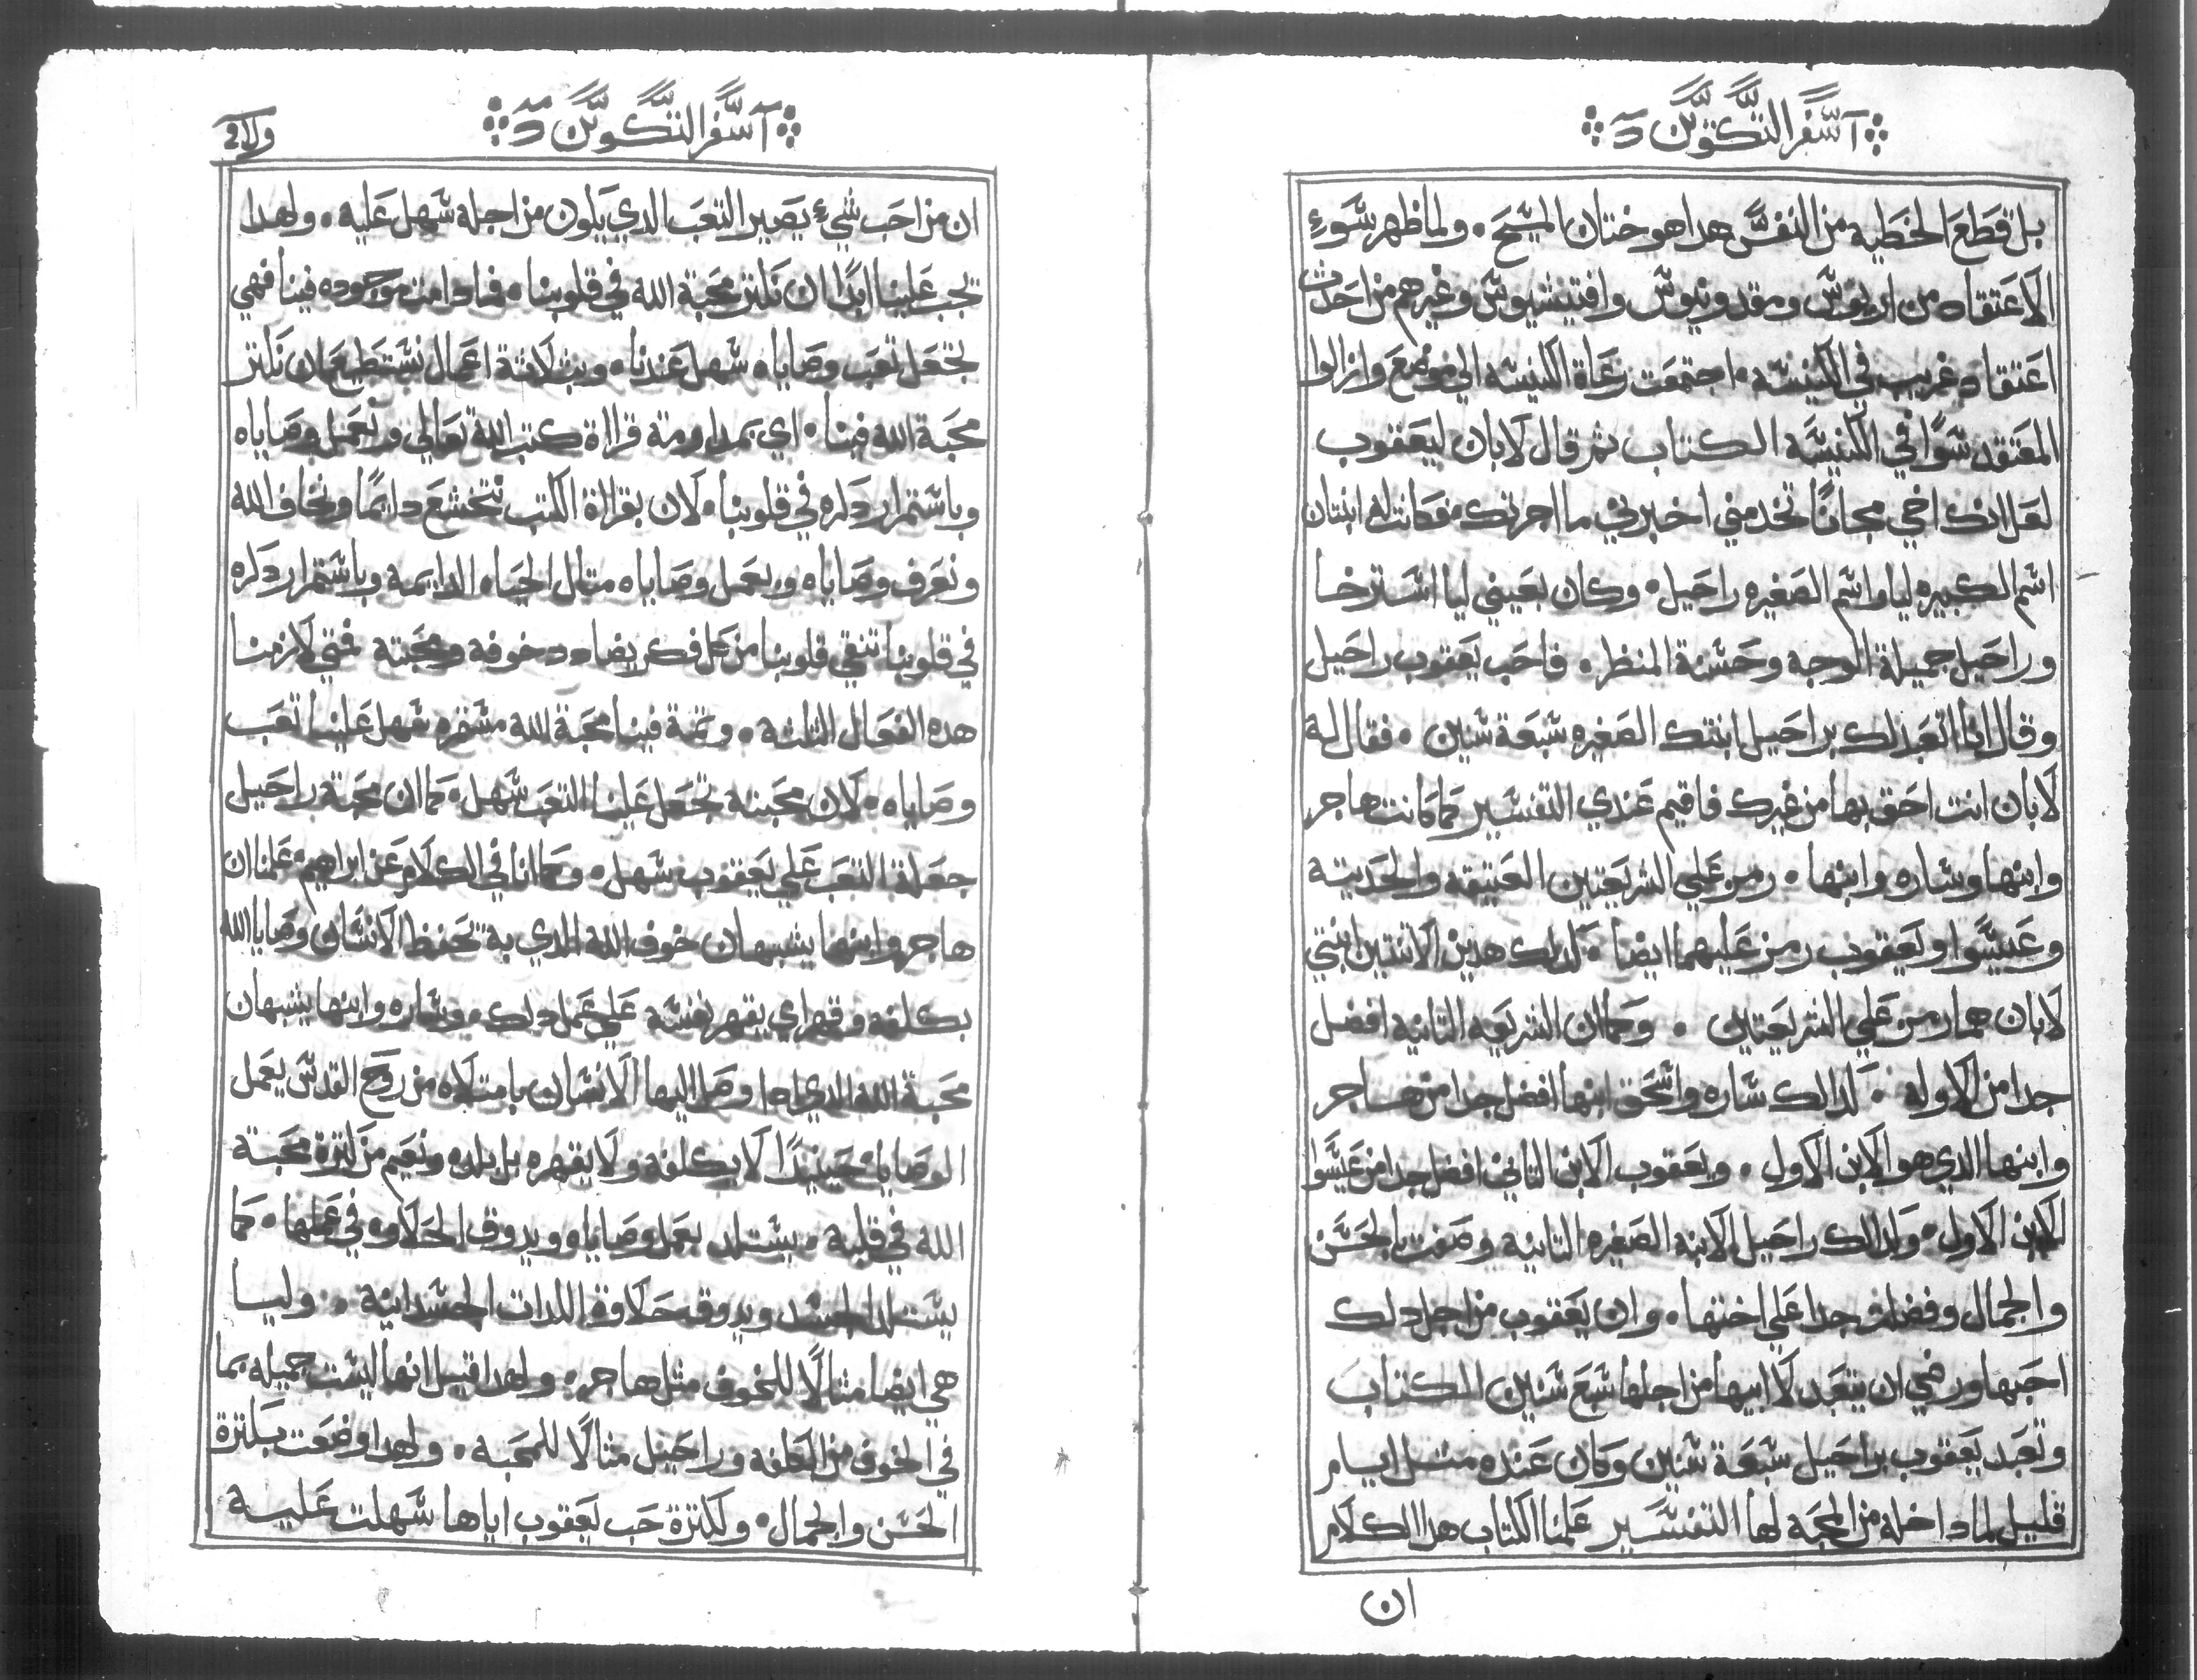 سفر التكوين
بل قطع الخطيه من النفس هدا هو ختان المسيح ٠ ولما ظهر سوء
الاعتقاد من اريوس ومقدونيوس وغيرهم من احدث
اعتقاد غريب في الكنيسه ٠ اجتمعت رعاة الكنيسه الي موضع وازالوا
المعتقد سوًا في الكنيسه الكتاب ثم قال لابان ليعقوب
لعل انك اخي مجانًا تخدمني اخبرني ما اجرتك وكانت له ابنتان
اسم الكبيره ليا واسم الصغيره راحيل ٠ وكان بعيني ليا استرخا
وراحيل جميلة الوجه وحسنة المنظر ٠ فاحب يعقوب راحيل
وقال انا اتعبد لك براحيل ابنتك الصغيره سبعة سنين ٠ فقال له
لابان انت احق بها من غيرك فاقيم عندي التفسير كما كانت هاجر
وابنها وساره وابنها ٠ رمز علي الشريعتين العتيقه والحديثة
وعيسوا ويعقوب رمز عليهما ايضا ٠ كدلك هدين الاتنتين ابنتي
لابان هما رمز علي الشريعتين ٠ وكما ان الشريعه الثانيه افضل
جدا من الاوله ٠ كدالك ساره واسحق ابنها افضل جدا من هاجر
وابنها الدي هو الابن الاول ٠ ويعقوب الابن التاني افضل جدا من عيسوا
الابن الاول ٠ وكدالك راحيل الابنه الصغيره الثانيه وصفت بالحسن
والجمال وفضلت جدا علي اختها ٠ وان يعقوب من اجل دلك
احبها ورضي ان يتعبد لابيها من اجلها سبع سنين الكتاب
وتعبد يعقوب براحيل سبعة سنين وكان عنده متل ايام
قليل لما داخله من المحبه لها التفسير علمنا الكتاب هدا الكلام
ان
سفر التكوين
ان من احب شيء يصير التعب الدي يكون من اجله سهل عليه ٠ ولهدا
يجب علينا ابدًا ان نكتر محبة الله في قلوبنا ٠ فما دامت موجوده فينا فهي
تجعل تعب وصاياه سهل عندنا ٠ وبثلاثة اعمال نستطيع ان نكتر
محبة الله فينا ٠ اي بمداومة قراة كتب الله تعالي وبعمل وصاياه
وباستمرار دكره في قلوبنا ٠ لان بقراة الكتب نتخشع دايمًا ونخاف الله
ونعرف وصاياه وبعمل وصاياه منال الحياه الدايمه وباستمرار دكره
في قلوبنا تنقي قلوبنا من كل فكر يضادد خوفه ومحبته فمتي لازمنا
هده الفعال التلته ٠ وتمة فينا محبة الله مستمره سهل علينا تعب
وصاياه ٠ لان محبته تجعل علينا التعب سهل ٠ كما ان محبة راحيل
جعلة التعب علي يعقوب سهل ٠ وكما انا في الكلام عن ابراهيم علمنا ان
هاجر وابنها يشبهان خوف الله الدي به تحفظ الانسان وصايا الله
بكلفه وقهر اي يقهر نفسه علي عمل دلك ٠ وساره وابنها يشبهان
محبة الله الدي ادا وصل اليها الانسان بامتلاه من روح القدس يعمل
الوصايا ٠ حينيدًا لا بكلفه ولا يقهره بل بلده ونعيم من كترة محبة
الله في قلبه ٠ يستلد بعمل وصاياه ويدوق الحلاوه في عملها ٠ كما
يستلد الجسد ويدوقه حلاوة اللدات الجسدانيه ٠ وليا
هي ايضا متالًا للخوف متل هاجر ٠ ولهدا قيل انها ليست جميله بما
في الخوف من الكلفه وراحيل مثالًا للمحبه ٠ ولهدا وضعت بكترة
الحسن والجمال ٠ ولكترة حب يعقوب اياها سهلت عليه